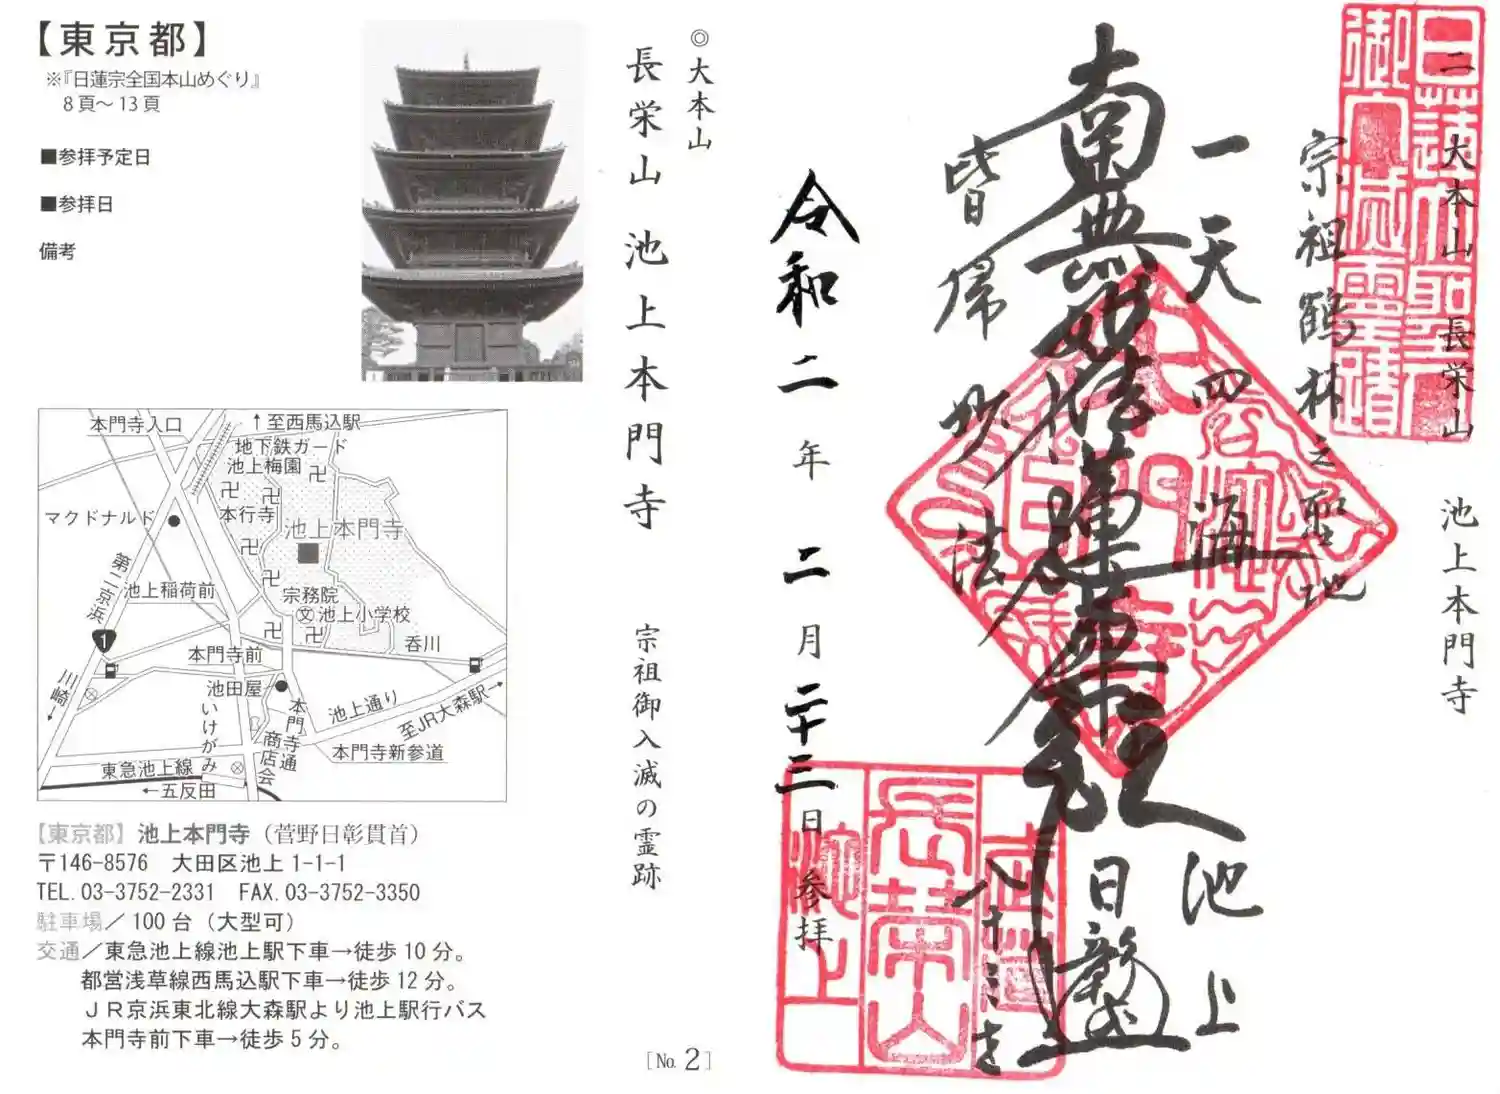 【東京都】
※『日蓮宗全国本山めぐり』
8頁～13頁
■参拝予定日
■参拝日
備考
本門寺入口
↑至西馬込駅
地下鉄ガード
池上梅園
本行寺
マクドナルド
池上本門寺
第二京浜
池上稲荷前
宗務院
文 池上小学校
1
本門寺前
呑川
川崎
池田屋
池上通り
至JR大森駅→
いけがみ
本門寺通商店会
本門寺新参道
東急池上線
←五反田
【東京都】 池上本門寺（菅野日彰貫首）
〒146-8576　大田区池上1-1-1
TEL. 03-3752-2331　FAX. 03-3752-3350
駐車場／100台（大型可）
交通／東急池上線池上駅下車→徒歩10分。
都営浅草線西馬込駅下車→徒歩12分。
ＪＲ京浜東北線大森駅より池上駅行バス
本門寺前下車→徒歩5分。
◎大本山
長栄山 池上本門寺　宗祖御入滅の霊跡
［No. 2］
二 大本山 長栄山 池上本門寺
日蓮大聖人
御入滅霊蹟
宗祖鶴林之聖地
一天四海
南無妙法蓮華経
皆帰妙法
池上
日彰
八十三才
令和二年 二月 二十三日 参拝
長栄山
池上